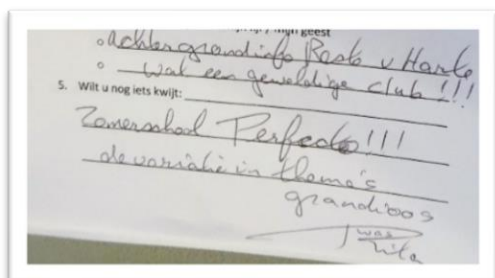 mijn geest
achtergrondinfo Resto v Harte
wat een geweldige club!!!
5. Wilt u nog iets kwijt:
Zomerschool Perfect!!!
de variatie in thema's
grandioos
was